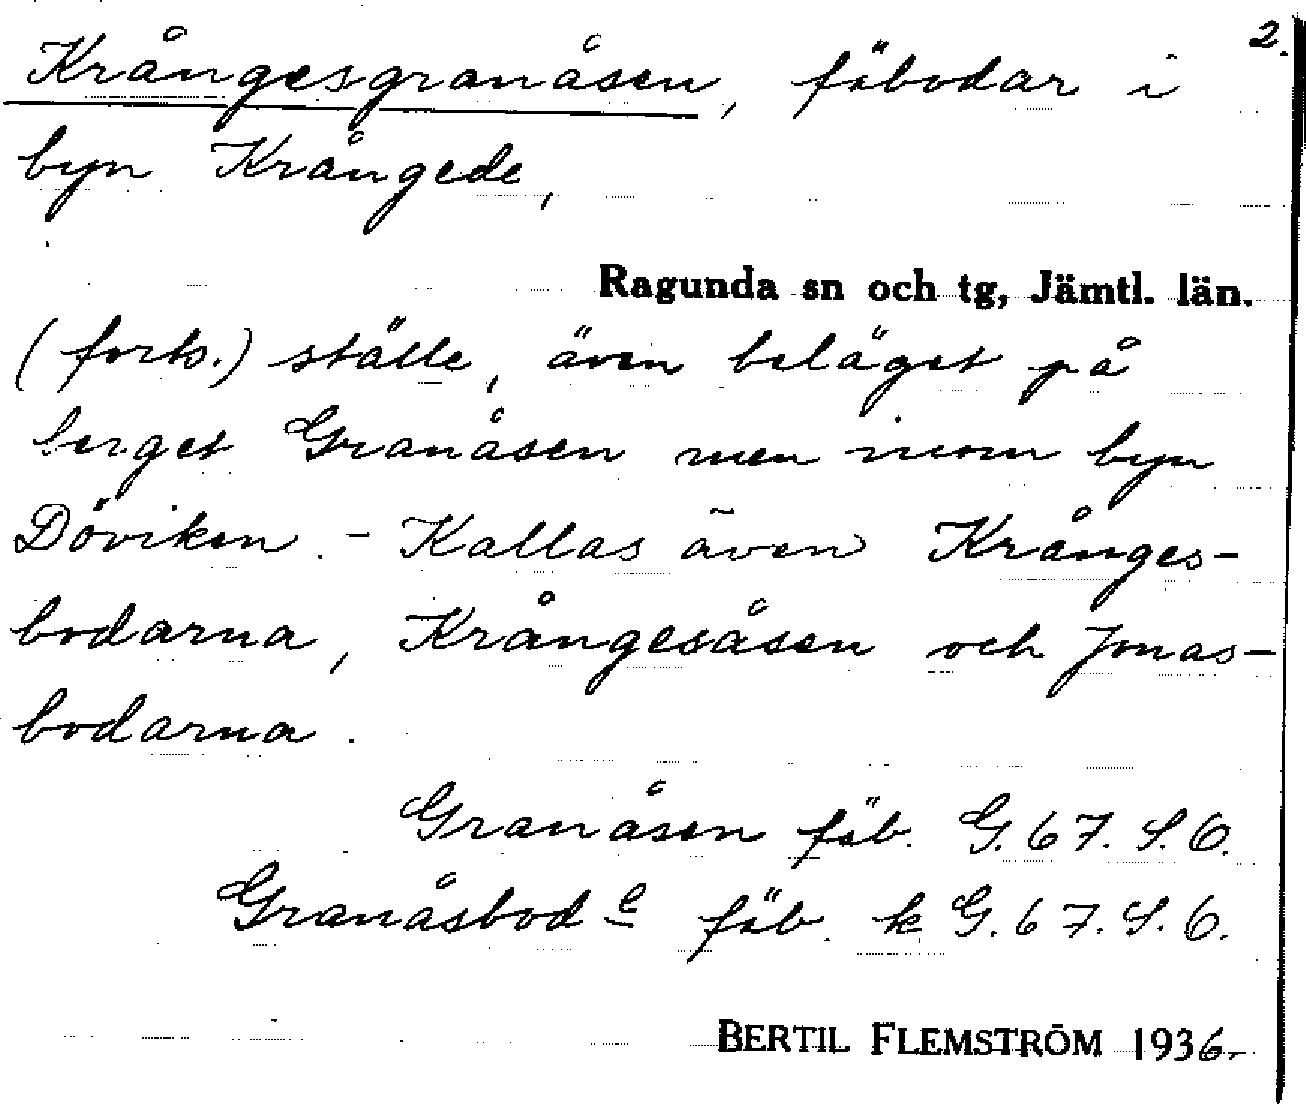 2.
Krångesgranåsen, fäbodar i
byn Krångede,
Ragunda sn och tg, Jämtl. län.
(forts.) ställe, även beläget på
berget Granåsen men inom byn
Döviken. - Kallas även Krånges-
bodarna, Krångesåsen och Jonas-
bodarna.
Granåsen fäb. G. 67. S. O.
Granåsbode fäb. k G. 67. S. O.
BERTIL FLEMSTRÖM 1936.